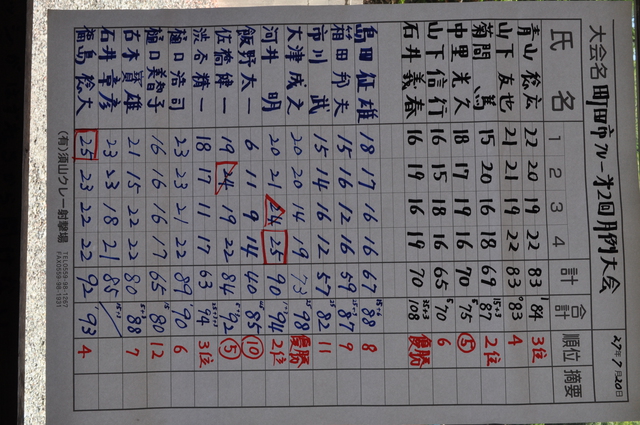 大会名 町田市クレー第2回月例大会
27年7月20日
氏名 1 2 3 4 計 合計 順位 摘要
青山 裕広 22 20 19 22 83 84 3位
山下 友也 21 21 19 22 83 83 4
菊間 篤 15 20 16 18 69 87 2位
中里 光久 18 17 19 16 70 75 5
山下 信行 16 15 18 16 65 70 6
石井 義春 16 19 16 19 70 108 優勝
島田 征雄 18 17 16 16 67 88 8
稲田 邦夫 15 16 12 16 59 87 9
市川 武 15 14 16 12 57 82 11
大津 成之 20 20 14 19 73 98 優勝
河井 明 20 21 24 25 90 94 2位
飯野 太一 6 11 9 14 40 85 10
佐橋 健一 19 24 19 22 84 92 5
渋谷 精一 18 17 11 17 63 94 3位
樋口 浩司 23 23 21 22 89 90 6
樋口 美智子 16 16 16 17 65 80 12
吉本 賢雄 21 15 22 22 80 88 7
石井 章彦 23 23 18 21 85
飯島 裕夫 25 23 22 22 92 93 4
(有)須山クレー射撃場
TEL0559-98-1267
FAX0559-98-1331